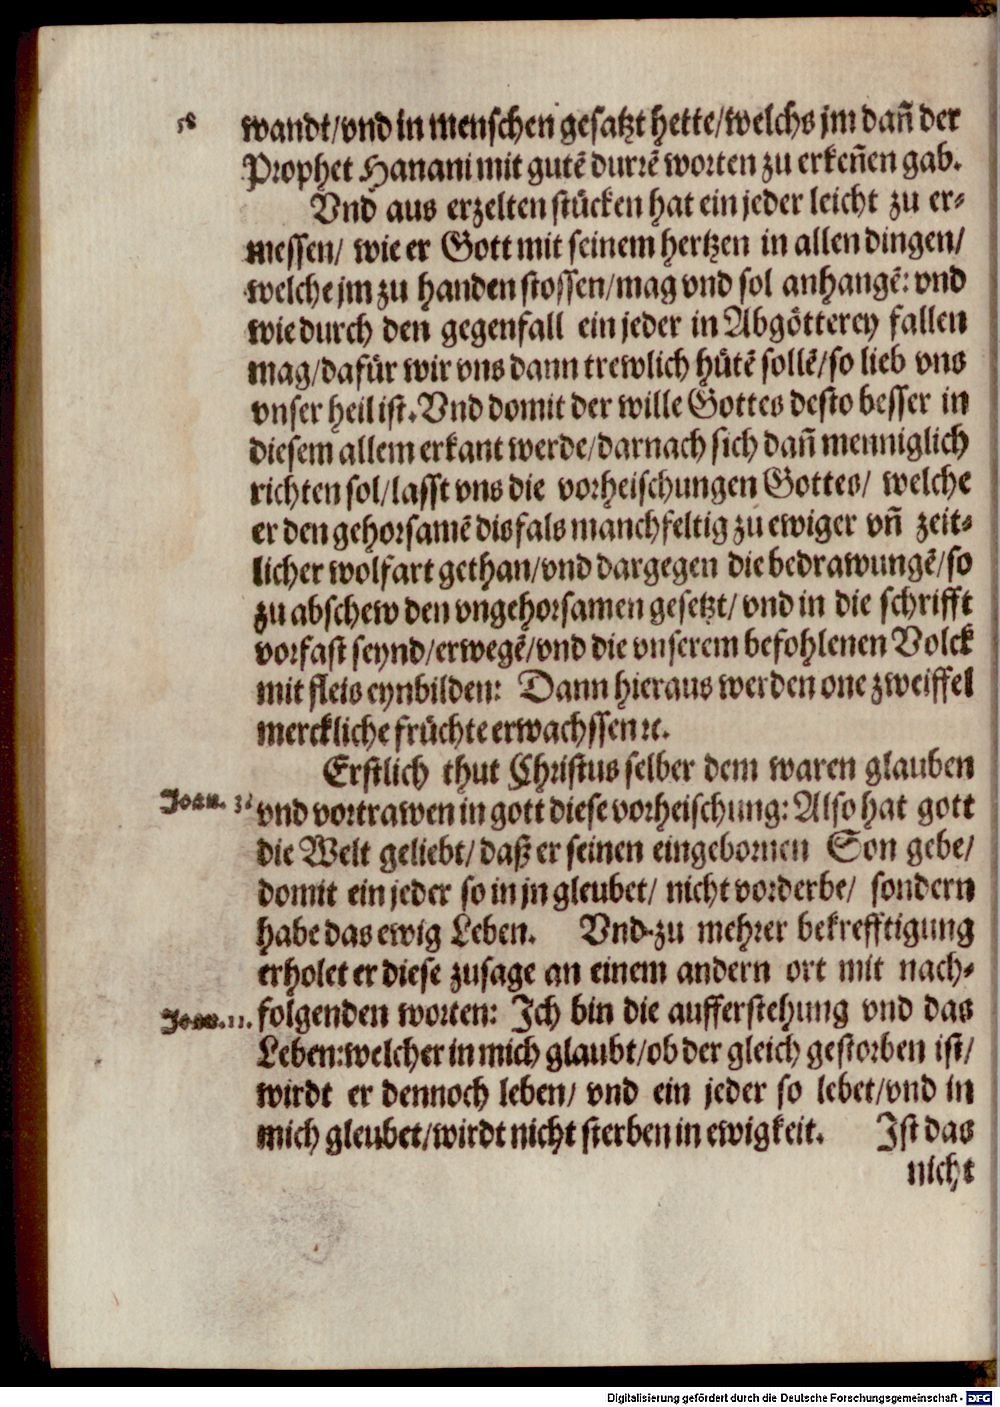 wandt/vnd in menschen gesatzt hette/welchs jm dañ der
Prophet Hanani mit gutē durrē worten zu erkeñen gab.
Vnd aus erzelten stücken hat ein jeder leicht zu er-
messen/ wie er Gott mit seinem hertzen in allen dingen/
welche jm zu handen stossen/mag vnd sol anhangē: vnd
wie durch den gegenfall ein jeder in Abgötterey fallen
mag/dafür wir vns dann trewlich hütē sollē/so lieb vns
vnser heil ist. Vnd domit der wille Gottes desto besser in
diesem allem erkant werde/darnach sich dañ menniglich
richten sol/lasst vns die vorheischungen Gottes/ welche
er den gehorsamē disfals manchfeltig zu ewiger vñ zeit-
licher wolfart gethan/vnd dargegen die bedrawungē/so
zu abschew den vngehorsamen gesetzt/ vnd in die schrifft
vorfast seynd/erwegē/vnd die vnserem befohlenen Volck
mit fleis eynbilden: Dann hieraus werden one zweiffel
merckliche früchte erwachssen ꝛc.
Erstlich thut Christus selber dem waren glauben
Joan. 3.
vnd vortrawen in gott diese vorheischung: Also hat gott
die Welt geliebt/ daß er seinen eingebornen Son gebe/
domit ein jeder so in jn gleubet/ nicht vorderbe/ sondern
habe das ewig Leben. Vnd zu mehrer bekrefftigung
erholet er diese zusage an einem andern ort mit nach-
Joan. 11.
folgenden worten: Ich bin die aufferstehung vnd das
Leben: welcher in mich glaubt/ob der gleich gestorben ist/
wirdt er dennoch leben/ vnd ein jeder so lebet/vnd in
mich gleubet/wirdt nicht sterben in ewigkeit. Ist das
nicht
Digitalisierung gefördert durch die Deutsche Forschungsgemeinschaft - DFG